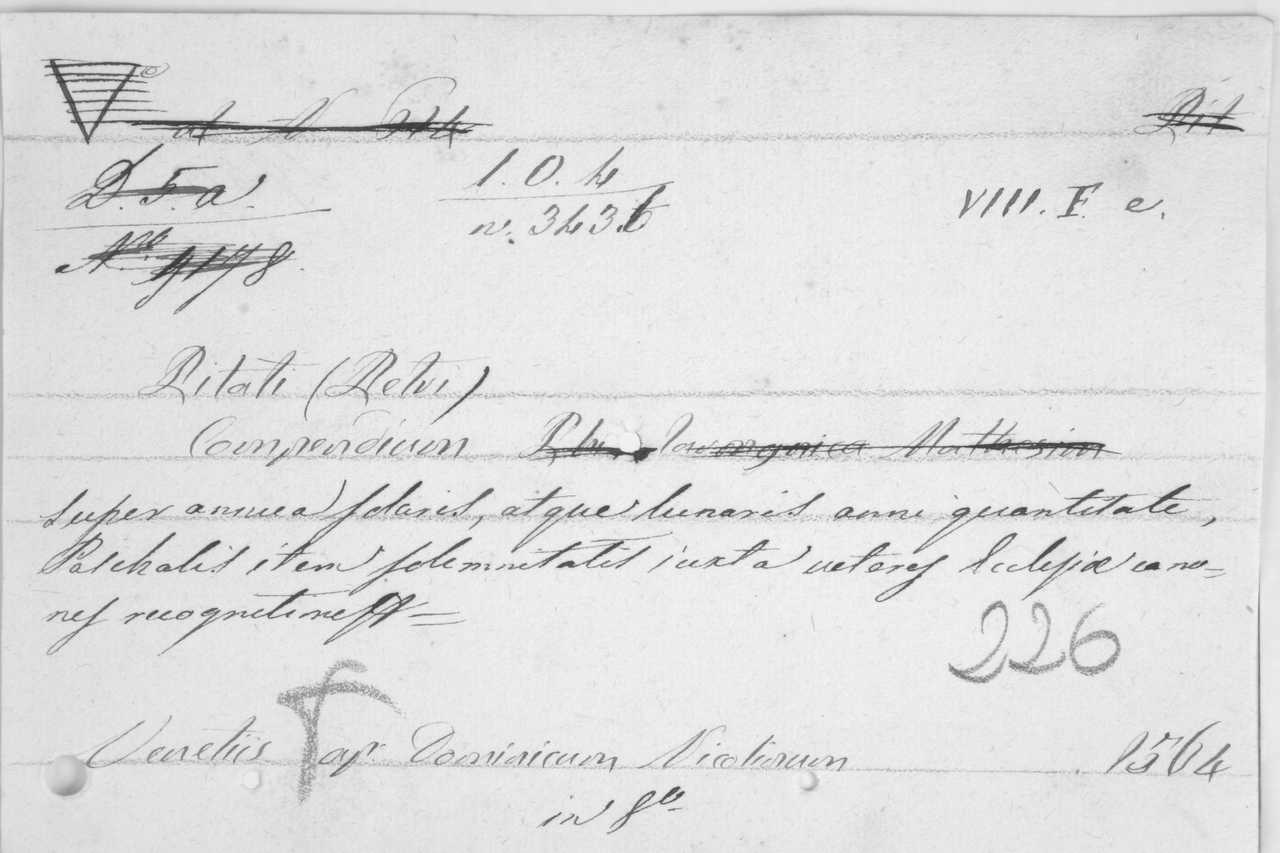 Pit
D. 5. a.
1. 0. 4
VIII. F. e.
n. 3435
No 9178.
Pitati (Petri)
Compendium
super annua solaris, atque lunaris anni quantitate,
Paschalis item solemnitatis iuxta veteres Ecclesiæ cano=
nes recognitione &=
226
Venetiis ap. Dominicum Nicolinum 1564
in 8o